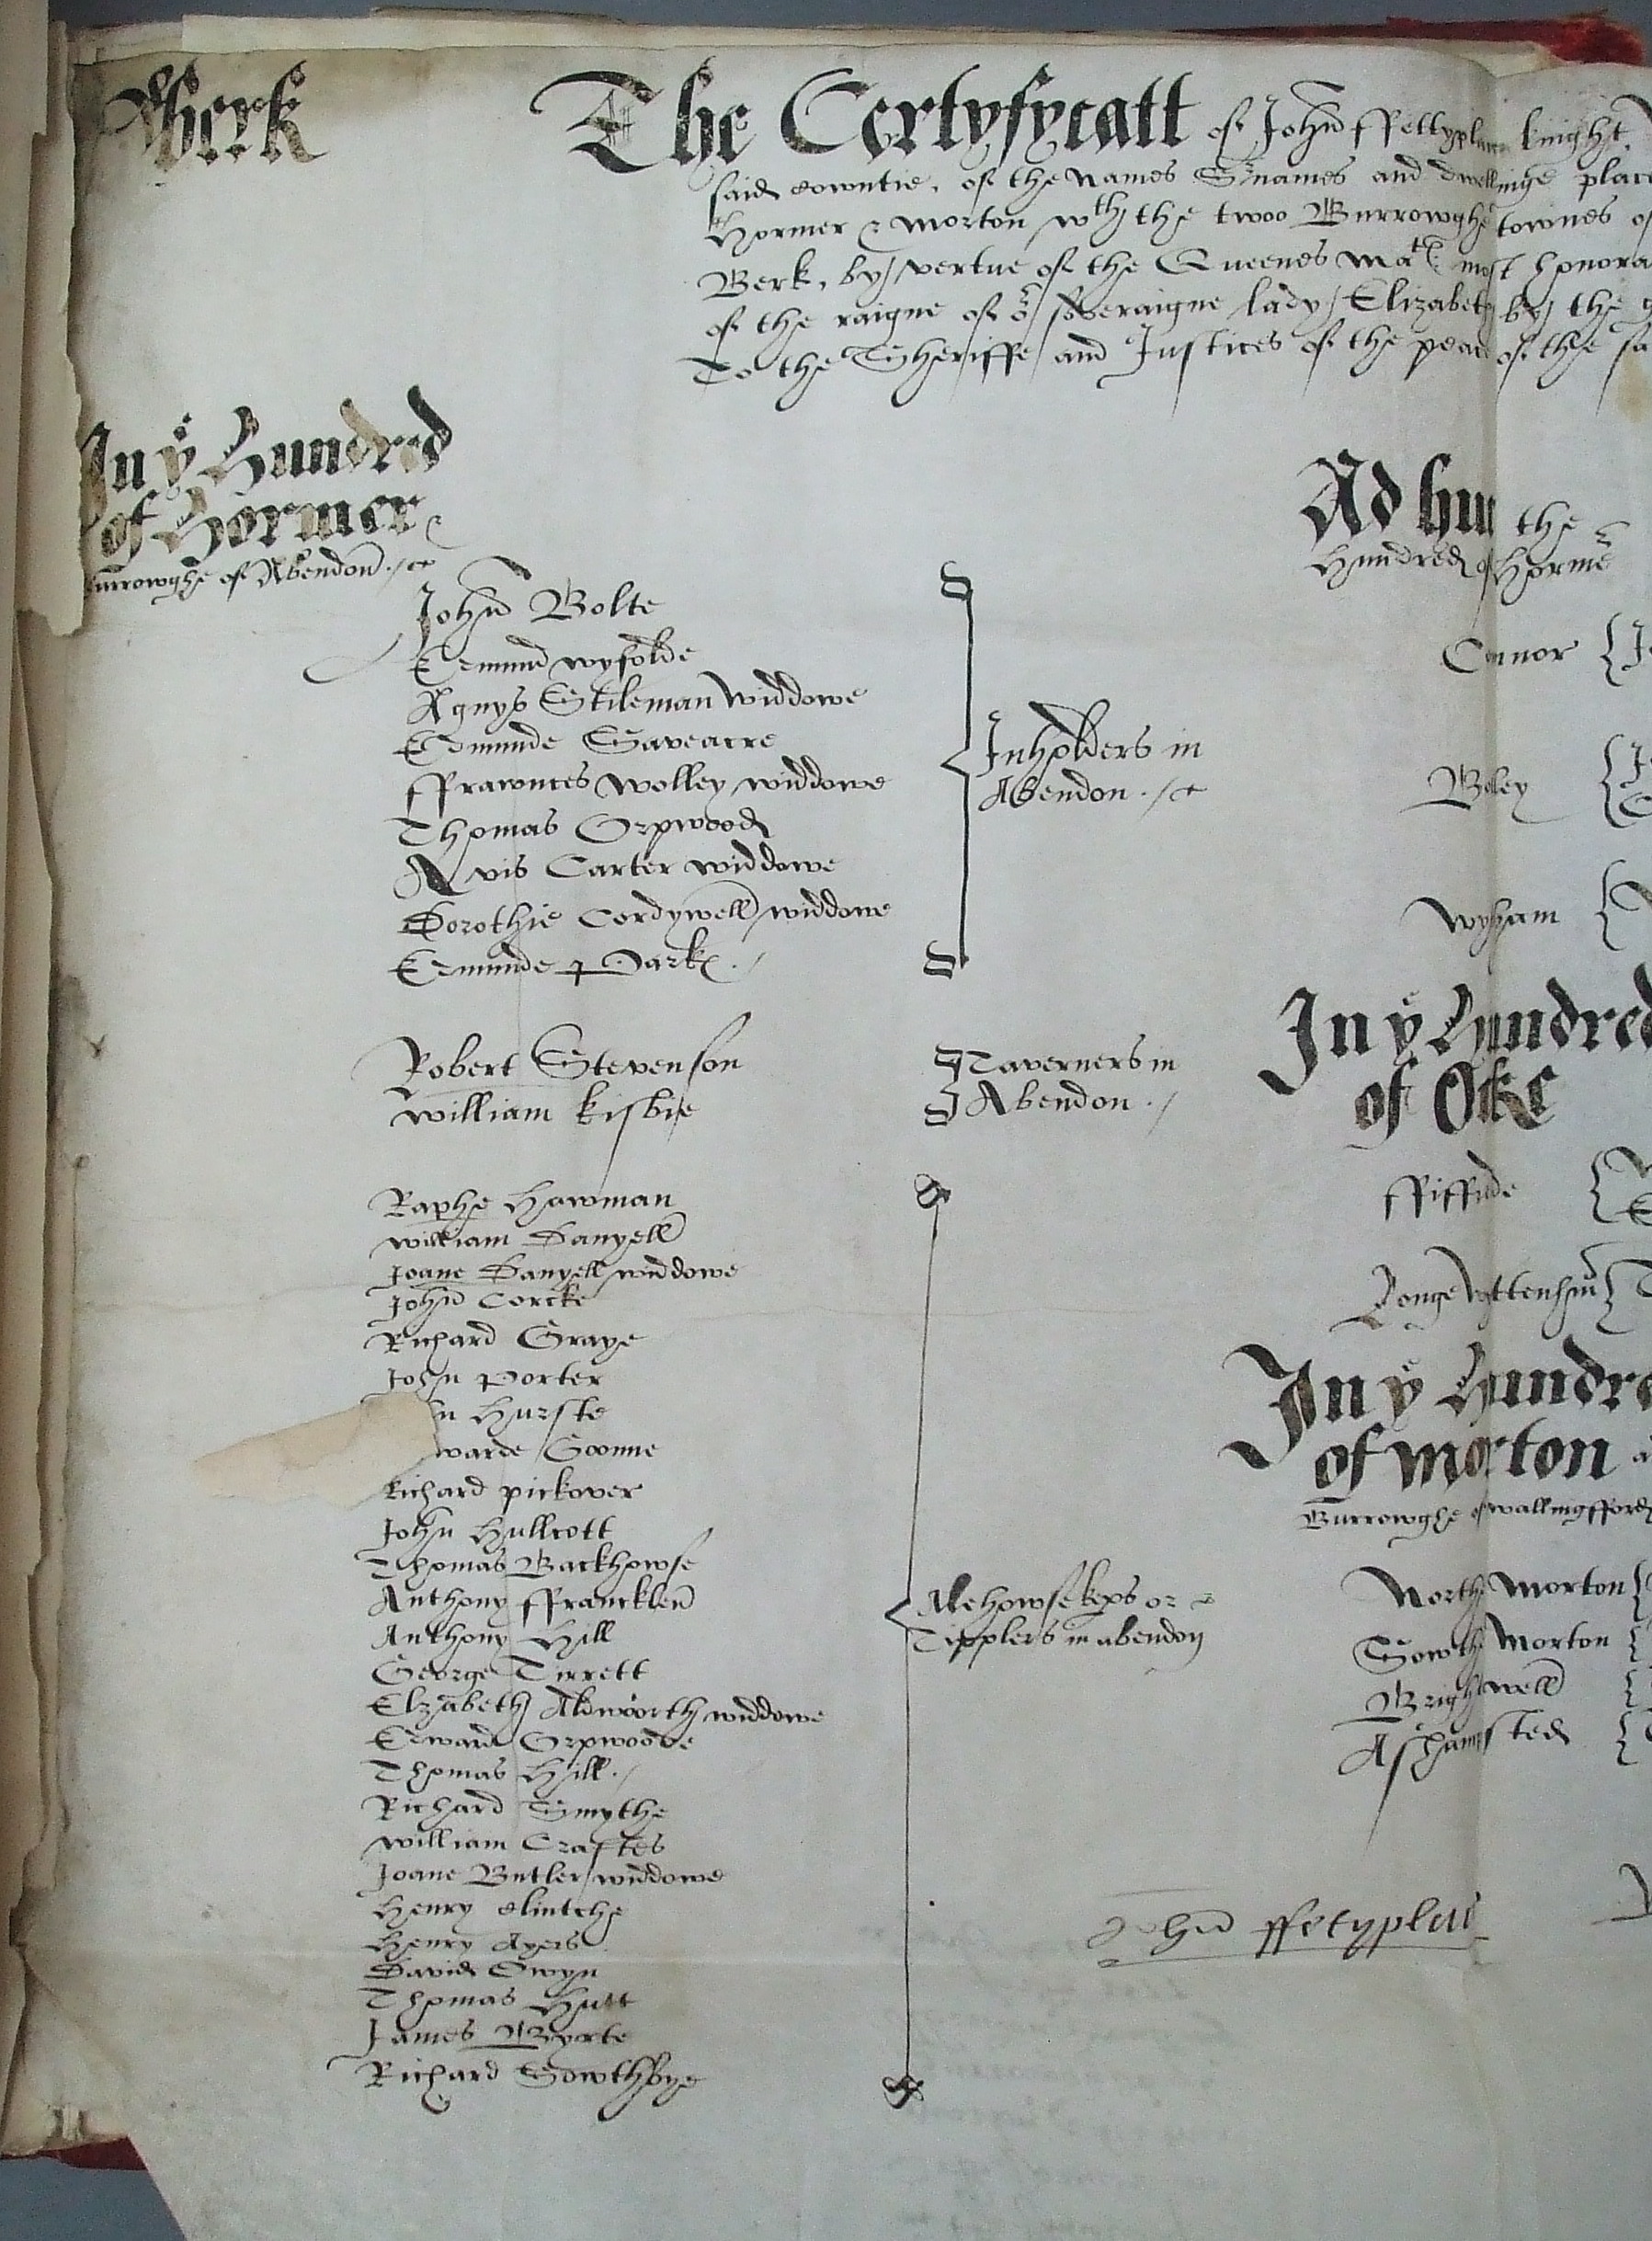 Berk
The Certyfycatt of John ffettyplace knight.
said cowntie, of the names Surnames and dwellinge place
Hormer & Morton wth the twoo Burrowghe townes of
Berk, by vertue of the Queenes Matꝭ most honora
of the raigne of or soveraigne lady Elizabeth by the g
To the Sheriffe and Justices of the peace of the sa
In ye Hundred
of Hormer
urrowghe of Abendon ./
John Bolte
Edmund wyfolde
Agnys Stileman widdowe
Edmunde Saveacre
ffrawnces Wolley widdowe
Thomas Orpwood
Avis Carter widdowe
Dorothie Cordywell widdowe
Edmunde Parkꝭ ./
Inholders in
Abendon ./
Robert Stevenson
William Kisbie
Taverners in
Abendon ./
Raphe Hawman
William Danyell
Joane Danyell widdowe
John Corcke
Richard Graye
John Porter
n Hurste
warde Goonne
Richard Pickover
John Hullcott
Thomas Backhowse
Anthony ffrancklen
Anthony Hill
George Tirrett
Elzabeth Aldwoorth widdowe
Edward Orpwoode
Thomas Hill ./
Richard Smythe
William Craftes
Joane Butler widdowe
Henry Clintche
Henry Ayers
David Gwyn
Thomas Hutt
James Byrte
Richard Sowthbye
Alehowse keps or
Tipplers in abendon
Ad huc the
Hundred of Horme
Comnor
Boley
Wyham
In ye Hundred
of Oke
ffiffide
Longe Wittenham
In ye Hundre
of Morton a
Burrowghe of Wallingfford
North Morton
Sowth Morton
Brightwell
Ashamsted
John ffetyplace